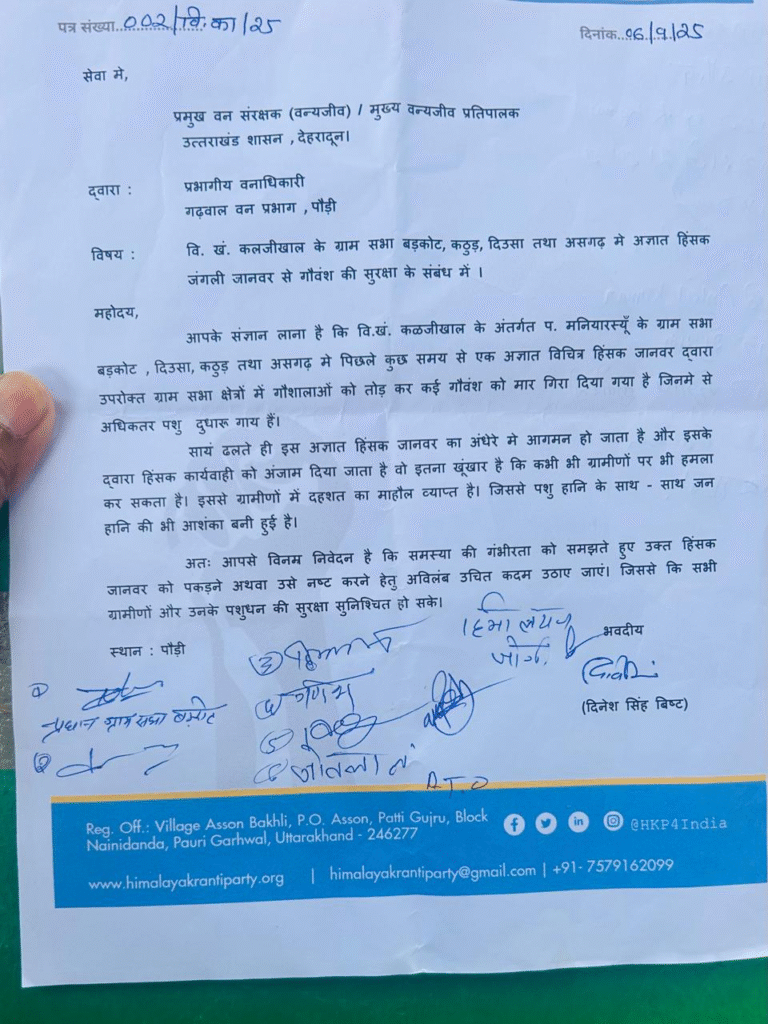 पत्र संख्या...002/वि.का/25
दिनांक..06/9/25
सेवा मे,
प्रमुख वन संरक्षक (वन्यजीव) / मुख्य वन्यजीव प्रतिपालक
उत्तराखंड शासन , देहरादून।
द्वारा :
प्रभागीय वनाधिकारी
गढ़वाल वन प्रभाग , पौड़ी
विषय :
वि. खं. कलजीखाल के ग्राम सभा बड़कोट, कठुड़, दिउसा तथा असगढ़ मे अज्ञात हिंसक
जंगली जानवर से गौवंश की सुरक्षा के संबंध में ।
महोदय,
आपके संज्ञान लाना है कि वि.खं. कळजीखाल के अंतर्गत प. मनियारस्यूँ के ग्राम सभा
बड़कोट , दिउसा, कठुड़ तथा असगढ़ मे पिछले कुछ समय से एक अज्ञात विचित्र हिंसक जानवर द्वारा
उपरोक्त ग्राम सभा क्षेत्रों में गौशालाओं को तोड़ कर कई गौवंश को मार गिरा दिया गया है जिनमे से
अधिकतर पशु दुधारू गाय हैं।
सायं ढलते ही इस अज्ञात हिंसक जानवर का अंधेरे मे आगमन हो जाता है और इसके
द्वारा हिंसक कार्यवाही को अंजाम दिया जाता है वो इतना खूंखार है कि कभी भी ग्रामीणों पर भी हमला
कर सकता है। इससे ग्रामीणों में दहशत का माहौल व्याप्त है। जिससे पशु हानि के साथ - साथ जन
हानि की भी आशंका बनी हुई है।
अतः आपसे विनम्र निवेदन है कि समस्या की गंभीरता को समझते हुए उक्त हिंसक
जानवर को पकड़ने अथवा उसे नष्ट करने हेतु अविलंब उचित कदम उठाए जाएं। जिससे कि सभी
ग्रामीणों और उनके पशुधन की सुरक्षा सुनिश्चित हो सके।
स्थान : पौड़ी
भवदीय
(दिनेश सिंह बिष्ट)
प्रधान ग्राम सभा
Reg. Off.: Village Asson Bakhli, P.O. Asson, Patti Gujru, Block
Nainidanda, Pauri Garhwal, Uttarakhand - 246277
@HKP4India
www.himalayakrantiparty.org | himalayakrantiparty@gmail.com | +91- 7579162099